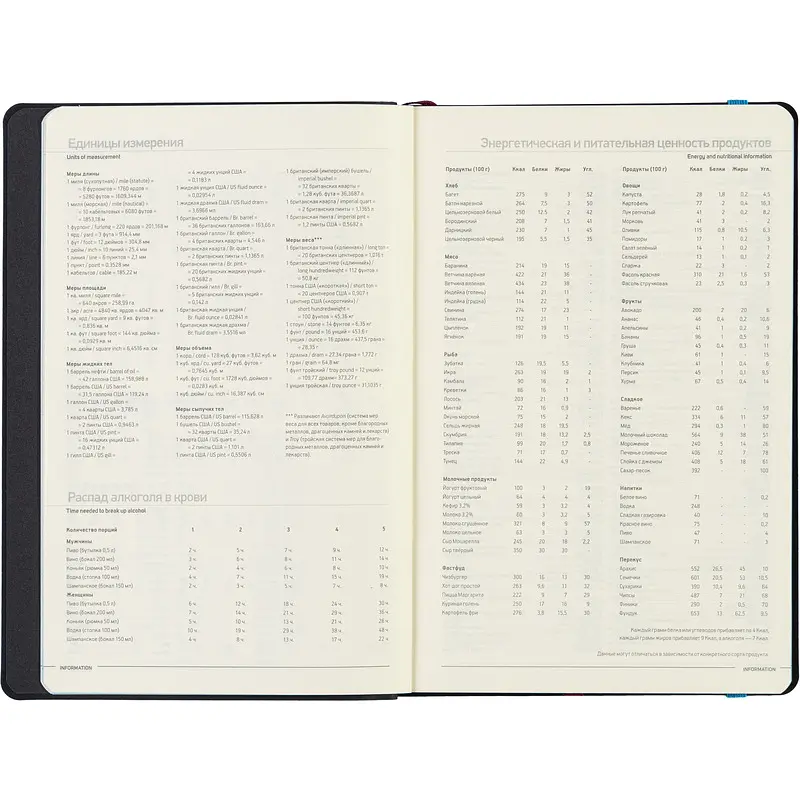 Единицы измерения
Units of measurement
Меры длины
1 миля (сухопутная) / mile (statute) =
= 8 фурлонгов = 1760 ярдов =
= 5280 футов = 1609,344 м
1 миля (морская) / mile (nautical) =
= 10 кабельтовых = 6080 футов =
= 1853,18 м
1 фурлонг / furlong = 220 ярдов = 201,168 м
1 ярд / yard = 3 фута = 914,4 мм
1 фут / foot = 12 дюймов = 304,8 мм
1 дюйм / inch = 10 линий = 25,4 мм
1 линия / line = 6 пунктов = 2,1 мм
1 пункт / point = 0,3528 мм
1 кабельтов / cable = 185,22 м
Меры площади
1 кв. миля / square mile =
= 640 акров = 258,99 га
1 акр / acre = 4840 кв. ярдов = 4047 кв. м
1 кв. ярд / square yard = 9 кв. футов =
= 0,836 кв. м
1 кв. фут / square foot = 144 кв. дюйма =
= 0,0929 кв. м
1 кв. дюйм / square inch = 6,4516 кв. см
Меры жидких тел
1 баррель нефти / barrel of oil =
= 42 галлона США = 158,988 л
1 баррель США / US barrel =
= 31,5 галлона США = 119,24 л
1 галлон США / US gallon =
= 4 кварты США = 3,785 л
1 кварта США / US quart =
= 2 пинты США = 0,9463 л
1 пинта США / US pint =
= 16 жидких унций США =
= 0,47312 л
1 гилл США / US gill =
= 4 жидких унций США =
= 0,1183 л
1 жидкая унция США / US fluid ounce =
= 0,02954 л
1 жидкая драхма США / US fluid dram =
= 3,6966 мл
1 британский баррель / Br. barrel =
= 36 британских галлонов = 163,66 л
1 британский галлон / Br. gallon =
= 4 британских кварты = 4,546 л
1 британская кварта / Br. quart =
= 2 британских пинты = 1,1365 л
1 британская пинта / Br. pint =
= 20 британских жидких унций =
= 0,5682 л
1 британский гилл / Br. gill =
= 5 британских жидких унций =
= 0,142 л
1 британская жидкая унция /
Br. fluid ounce = 0,02841 л
1 британская жидкая драхма /
Br. fluid dram = 3,5516 мл
Меры объема
1 корд / cord = 128 куб. футов = 3,62 куб. м
1 куб. ярд / cu. yard = 27 куб. футов =
= 0,7646 куб. м
1 куб. фут / cu. foot = 1728 куб. дюймов =
= 0,0283 куб. м
1 куб. дюйм / cu. inch = 16,387 куб. см
Меры сыпучих тел
1 баррель США / US barrel = 115,628 л
1 бушель США / US bushel =
= 32 кварты США = 35,24 л
1 кварта США / US quart =
= 2 пинты США = 1,101 л
1 пинта США / US pint = 0,5506 л
1 британский (имперский) бушель /
imperial bushel =
= 32 британских кварты =
= 1,28 куб. фута = 36,3687 л
1 британская кварта / imperial quart =
= 2 британских пинты = 1,1365 л
1 британская пинта / imperial pint =
= 1,2 пинты США = 0,5682 л
Меры веса***
1 британская тонна («длинная») / long ton =
= 20 британских центнеров = 1,016 т
1 британский центнер («длинный») /
long hundredweight = 112 фунтов =
= 50,8 кг
1 тонна США («короткая») / short ton =
= 20 центнеров США = 0,907 т
1 центнер США («короткий») /
short hundredweight =
= 100 фунтов = 45,36 кг
1 стоун / stone = 14 фунтов = 6,35 кг
1 фунт / pound = 16 унций = 453,6 г
1 унция / ounce = 16 драхм = 437,5 гран =
= 28,35 г
1 драхма / dram = 27,34 грана = 1,772 г
1 гран / grain = 64,8 мг
1 фунт тройский / troy pound = 12 унций =
= 109,72 драхм = 373,27 г
1 унция тройская / troy ounce = 31,1035 г
*** Различают Avoirdupois (система мер
веса для всех товаров, кроме благородных
металлов, драгоценных камней и лекарств)
и Troy (тройская система мер для благо-
родных металлов, драгоценных камней и
лекарств)
Распад алкоголя в крови
Time needed to break up alcohol
Количество порций 1 2 3 4 5
Мужчины
Пиво (бутылка 0,5 л) 2 ч. 5 ч. 7 ч. 9 ч. 12 ч.
Вино (бокал 200 мл) 3 ч. 6 ч. 8 ч. 11 ч. 14 ч.
Коньяк (рюмка 50 мл) 2 ч. 4 ч. 6 ч. 8 ч. 10 ч.
Водка (стопка 100 мл) 4 ч. 7 ч. 11 ч. 15 ч. 19 ч.
Шампанское (бокал 150 мл) 2 ч. 3 ч. 5 ч. 7 ч. 8 ч.
Женщины
Пиво (бутылка 0,5 л) 6 ч. 12 ч. 18 ч. 24 ч. 30 ч.
Вино (бокал 200 мл) 7 ч. 14 ч. 21 ч. 29 ч. 36 ч.
Коньяк (рюмка 50 мл) 5 ч. 10 ч. 13 ч. 21 ч. 28 ч.
Водка (стопка 100 мл) 10 ч. 19 ч. 29 ч. 38 ч. 48 ч.
Шампанское (бокал 150 мл) 4 ч. 8 ч. 13 ч. 17 ч. 22 ч.
INFORMATION
Энергетическая и питательная ценность продуктов
Energy and nutritional information
Продукты (100 г) Ккал Белки Жиры Угл.
Хлеб
Багет 275 9 3 52
Батон нарезной 264 7,5 3 50
Цельнозерновой белый 250 12,5 2 42
Бородинский 208 7 1,5 41
Дарницкий 230 7 1 45
Цельнозерновой черный 195 5,5 1,5 35
Мясо
Баранина 214 19 15 -
Ветчина варёная 422 21 38 -
Ветчина вяленая 434 23 38 -
Индейка (голень) 144 21 11 -
Индейка (грудка) 114 22 5 -
Свинина 274 17 23 -
Телятина 112 21 1 -
Цыплёнок 192 19 11 -
Ягнёнок 191 19 15 -
Рыба
Зубатка 126 19,5 5,5 -
Икра 263 19 18 2
Камбала 90 16 2 1
Креветки 88 16 1 3
Лосось 203 21 13 -
Минтай 72 16 0,9 -
Окунь морской 75 15 2 -
Сельдь жирная 248 18 19,5 -
Скумбрия 191 18 13,2 2,5
Тилапия 99 20 1,7 0,8
Треска 71 17 0,7 -
Тунец 144 22 4,9 -
Молочные продукты
Йогурт фруктовый 100 3 2 19
Йогурт цельный 64 4 4 4
Кефир 3,2% 59 3 3,2 4
Молоко 3,2% 60 3 3,2 5
Молоко сгущённое 321 8 9 57
Молоко цельное 63 3 3 5
Сыр Моцарелла 245 20 18 2,2
Сыр твёрдый 350 30 30
Фастфуд
Чизбургер 300 16 13 30
Хот-дог простой 263 9,6 11 32
Пицца Маргарита 222 9 7 29
Куриная голень 250 17 16 9
Картофель фри 276 3,8 15,5 30
Продукты (100 г) Ккал Белки Жиры Угл.
Овощи
Капуста 28 1,8 0,2 4,5
Картофель 77 2 0,4 16,3
Лук репчатый 41 2 0,2 8,2
Морковь 41 3 - 2
Оливки 115 0,8 10,5 6,3
Помидоры 17 1 0,2 3
Салат зелёный 14 1 0,2 1
Сельдерей 13 1 0,1 2
Спаржа 22 3 - 2
Фасоль красная 310 21 1,6 53
Фасоль стручковая 23 2,5 0,3 3
Фрукты
Авокадо 200 2 20 6
Ананас 46 0,4 0,2 10,6
Апельсины 41 1 0,2 9
Бананы 96 1 0,5 19
Груша 45 0,4 0,3 11
Киви 61 1 - 15
Клубника 41 1 0,4 6
Персик 45 1 0,1 9,5
Хурма 67 0,5 0,4 14
Сладкое
Варенье 222 0,6 - 59
Кекс 334 6 11 57
Мёд 294 0,3 1 80
Молочный шоколад 564 9 38 51
Мороженое 240 5 14 26
Печенье сливочное 406 12 7 78
Слойка с джемом 408 5 18 61
Сахар-песок 392 - - 100
Напитки
Белое вино 71 - - 0,2
Водка 248 - - -
Сладкая газировка 40 - - 10
Красное вино 75 - - 0,2
Пиво 47 - - 4
Шампанское 71 - - 3
Перекус
Арахис 552 26,5 45 10
Семечки 601 20,5 53 10,5
Сухарики 390 13,4 9,6 64
Чипсы 487 7 21 68
Финики 290 2 0,5 70
Фундук 653 13 62,5 9,5
Каждый грамм белка или углеводов прибавляет по 4 Ккал,
каждый грамм жиров прибавляет 9 Ккал, а алкоголя — 7 Ккал.
Данные могут отличаться в зависимости от конкретного сорта продукта.
INFORMATION